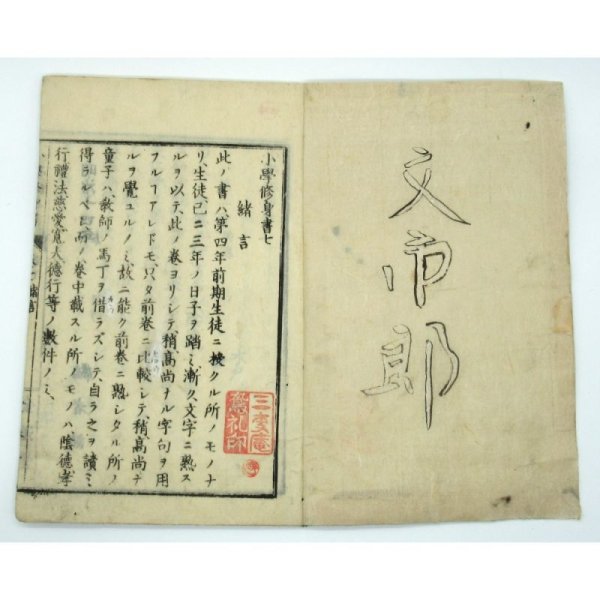 文市郎
小學修身書七
緒言
此ノ書ハ、第四年前期生徒ニ授クル所ノモノナ
リ、生徒、已ニ三年ノ日子ヲ踏ミ、漸ク、文字ニ熟ス
ルヲ以テ、此ノ巻ヨリシテ、稍高尚ナル字句ヲ用
フルヿアレドモ、只タ前巻ニ比較シテ、稍高尚ナ
ルヲ覺ユルノミ、故ニ能ク前巻ニ熟シタル所ノ
童子ハ、教師ノ馬丁ヲ借ラズシテ、自ラ之ヲ讀ミ
得ラルベシ、而ノ巻中載スル所ノモノハ、陰德孝
行禮法慈愛寛大德行等ノ數件ノミ、